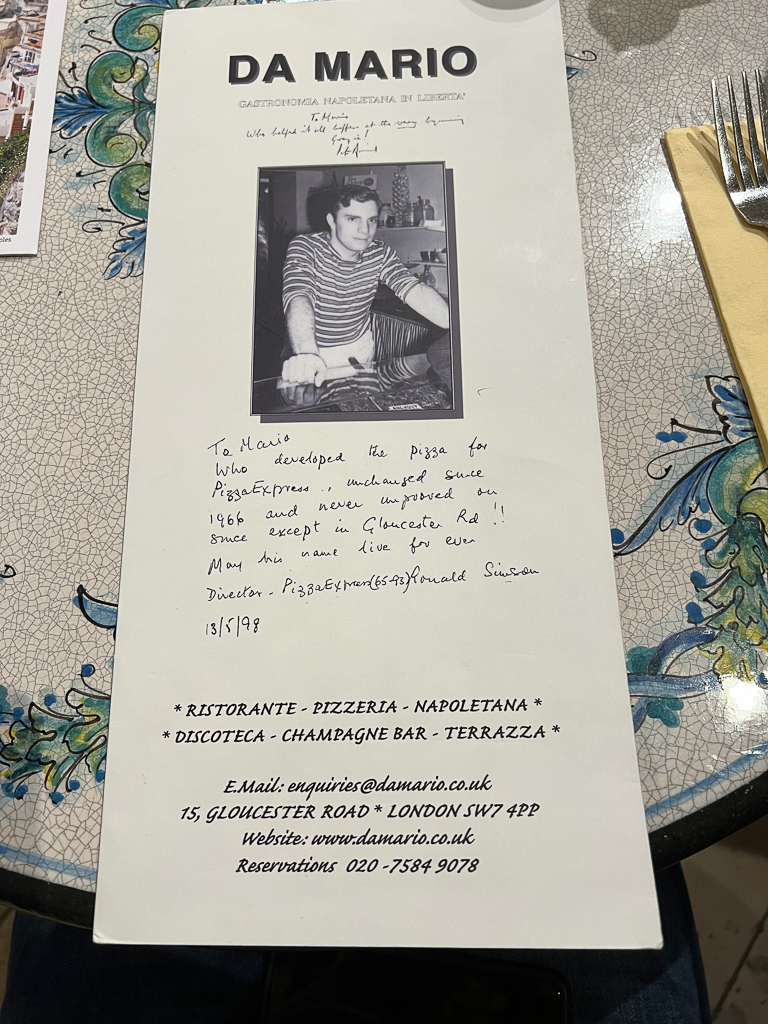 DA MARIO
GASTRONOMIA NAPOLETANA IN LIBERTA'
To Mario
Who helped it all happen at the very beginning
Grazie!
To Mario
Who developed the pizza for
PizzaExpress, unchanged since
1966 and never improved on
since except in Gloucester Rd !!
May his name live for ever
Director - PizzaExpress (65-93) Ronald Simson
13/5/98
* RISTORANTE - PIZZERIA - NAPOLETANA *
* DISCOTECA - CHAMPAGNE BAR - TERRAZZA *
E.Mail: enquiries@damario.co.uk
15, GLOUCESTER ROAD * LONDON SW7 4PP
Website: www.damario.co.uk
Reservations 020 -7584 9078